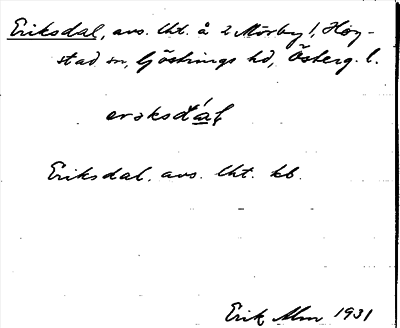 Eriksdal, avs. lht. å 2 Mörby l, Hög-
stad sn, Göstrings hd, Österg. l.
Eriksdal. avs. lht. kb.
Erik Alm 1931